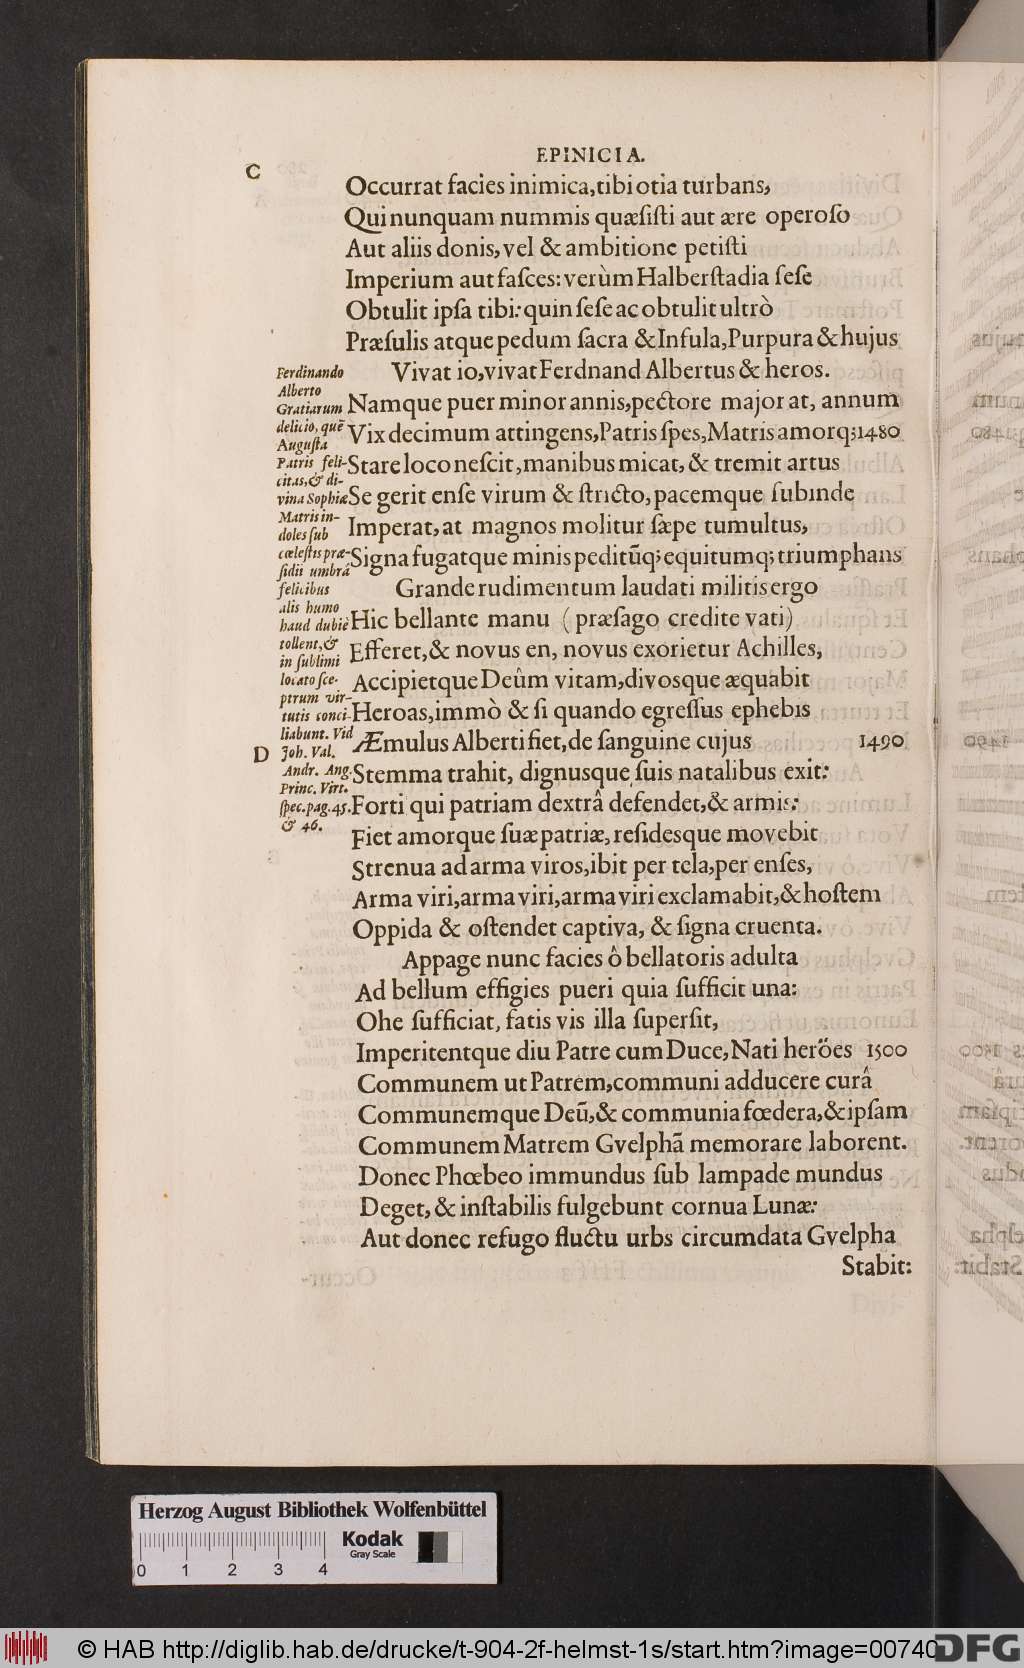 EPINICIA.
C
Occurrat facies inimica, tibi otia turbans,
Qui nunquam nummis quæſiſti aut ære operoſo
Aut aliis donis, vel & ambitione petiſti
Imperium aut faſces: verùm Halberſtadia ſeſe
Obtulit ipſa tibi: quin ſeſe ac obtulit ultrò
Præſulis atque pedum ſacra & Inſula, Purpura & hujus
Vivat io, vivat Ferdnand Albertus & heros.
Namque puer minor annis, pectore major at, annum
Vix decimum attingens, Patris ſpes, Matris amorq; 1480
Stare loco neſcit, manibus micat, & tremit artus
Se gerit enſe virum & ſtricto, pacemque ſubinde
Imperat, at magnos molitur ſæpe tumultus,
Signa fugatque minis peditũq; equitumq; triumphans
Grande rudimentum laudati militis ergo
Hic bellante manu (præſago credite vati)
Efferet, & novus en, novus exorietur Achilles,
Accipietque Deûm vitam, divosque æquabit
Heroas, immò & ſi quando egreſſus ephebis
Æmulus Alberti fiet, de ſanguine cujus 1490
D
Stemma trahit, dignusque ſuis natalibus exit:
Forti qui patriam dextrâ defendet, & armis:
Fiet amorque ſuæ patriæ, reſidesque movebit
Strenua ad arma viros, ibit per tela, per enſes,
Arma viri, arma viri, arma viri exclamabit, & hoſtem
Oppida & oſtendet captiva, & ſigna cruenta.
Appage nunc facies ô bellatoris adulta
Ad bellum effigies pueri quia ſufficit una:
Ohe ſufficiat, fatis vis illa ſuperſit,
Imperitentque diu Patre cum Duce, Nati heröes 1500
Communem ut Patrem, communi adducere curâ
Communemque Deũ, & communia fœdera, & ipſam
Communem Matrem Gvelphã memorare laborent.
Donec Phœbeo immundus ſub lampade mundus
Deget, & inſtabilis fulgebunt cornua Lunæ:
Aut donec refugo fluctu urbs circumdata Gvelpha
Stabit:
Ferdinando
Alberto
Gratiarum
delicio, quẽ
Auguſta
Patris feli-
citas, & di-
vina Sophiæ
Matris in-
doles ſub
cœleſtis præ-
ſidii umbrâ
felicibus
alis humo
haud dubiè
tollent, &
in ſublimi
locato ſce-
ptrum vir-
tutis conci-
liabunt. Vid
Joh. Val.
Andr. Ang.
Princ. Virt.
ſpec. pag. 45.
& 46.
Herzog August Bibliothek Wolfenbüttel
Kodak
Gray Scale
0 1 2 3 4
© HAB http://diglib.hab.de/drucke/t-904-2f-helmst-1s/start.htm?image=00740
DFG